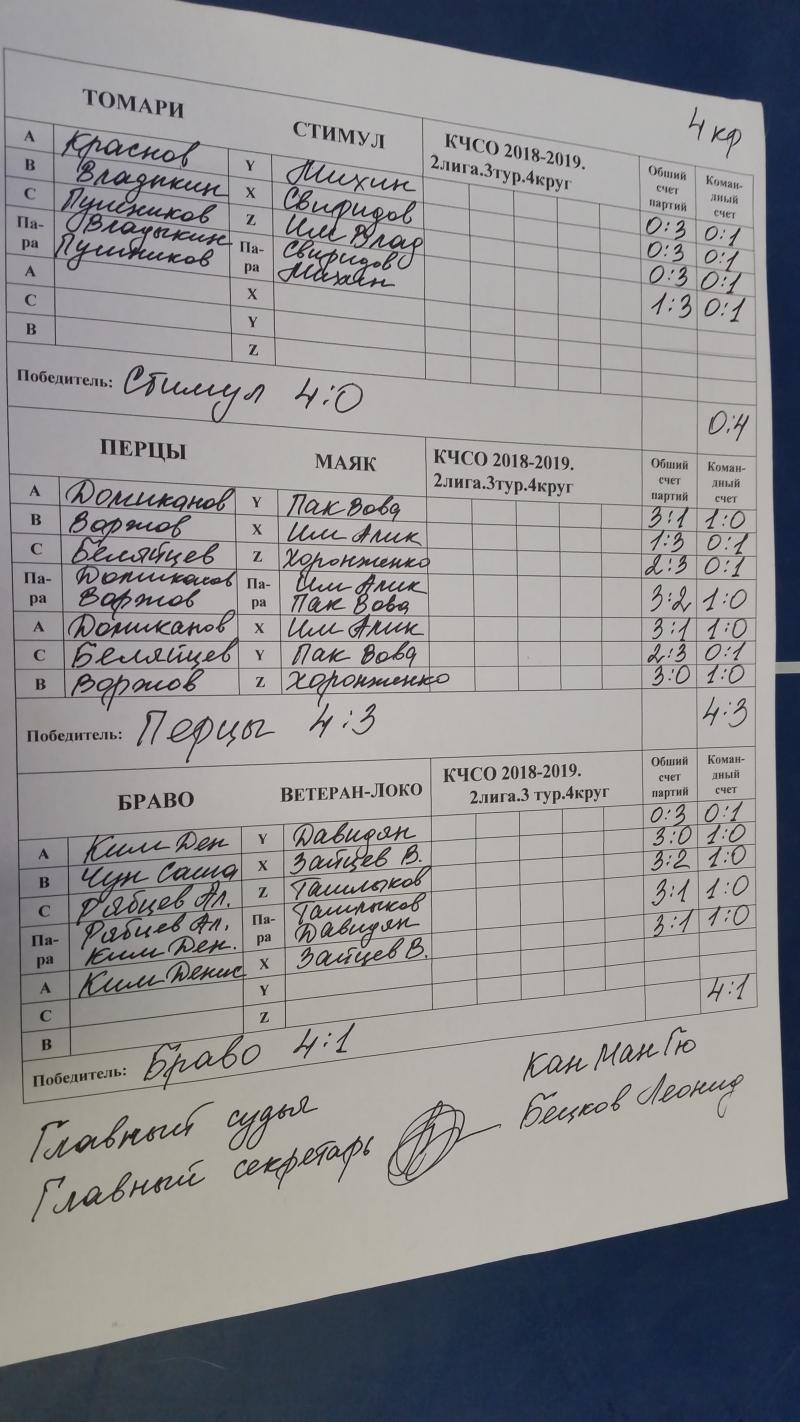 4 кр
ТОМАРИ СТИМУЛ КЧСО 2018-2019. 2лига.3тур.4круг Обший счет партий Коман-дный счет
A Краснов Y Михин 0:3 0:1
B Владыкин X Свиридов 0:3 0:1
C Пушников Z Им Влад 0:3 0:1
Па-ра Владыкин Пушников Па-ра Свиридов Михин 1:3 0:1
A X
C Y
B Z
Победитель: Стимул 4:0 0:4
ПЕРЦЫ МАЯК КЧСО 2018-2019. 2лига.3тур.4круг Обший счет партий Коман-дный счет
A Домиканов Y Пак Вова 3:1 1:0
B Варжов X Им Алик 1:3 0:1
C Беляйцев Z Хоронженко 2:3 0:1
Па-ра Домиканов Варжов Па-ра Им Алик Пак Вова 3:2 1:0
A Домиканов X Им Алик 3:1 1:0
C Беляйцев Y Пак Вова 2:3 0:1
B Варжов Z Хоронженко 3:0 1:0
Победитель: Перцы 4:3 4:3
БРАВО ВЕТЕРАН-ЛОКО КЧСО 2018-2019. 2лига.3 тур.4круг Обший счет партий Коман-дный счет
A Ким Ден Y Давидян 0:3 0:1
B Чун Саша X Зайцев В. 3:0 1:0
C Рябцев Ал. Z Ташлыков 3:2 1:0
Па-ра Рябцев Ал. Ким Ден. Па-ра Ташлыков Давидян 3:1 1:0
A Ким Денис X Зайцев В. 3:1 1:0
C Y
B Z
Победитель: Браво 4:1 4:1
Главный судья Кан Ман Гю
Главный секретарь Бецков Леонид